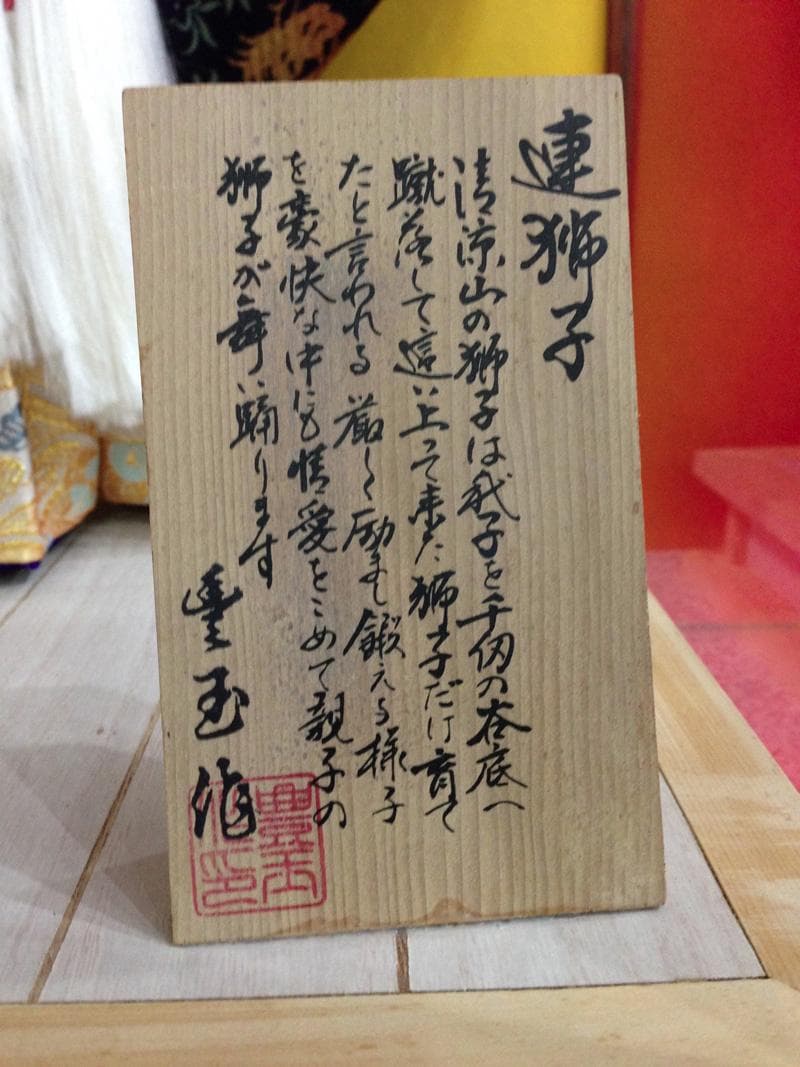 連獅子
清涼山の獅子は我子を千仭の谷底へ
蹴落して這い上って来た獅子だけ育て
たと言われる 厳しく励まし鍛える様子
を豪快な中にも情愛をこめて親子の
獅子が舞い踊ります
豊玉作